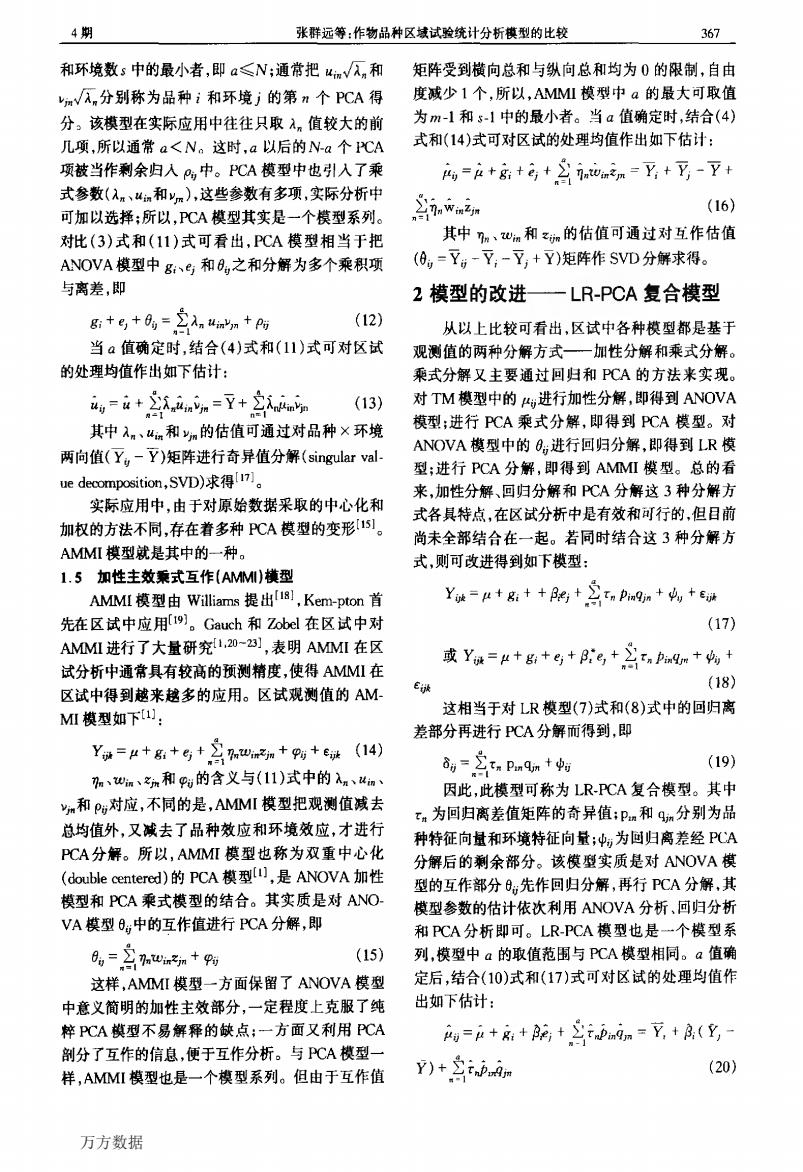 4 期
张群远等:作物品种区域试验统计分析模型的比较
367
和环境数 s 中的最小者,即 a≤N;通常把 uᵢₙ√λₙ 和
νⱼₙ√λₙ 分别称为品种 i 和环境 j 的第 n 个 PCA 得
分。该模型在实际应用中往往只取 λₙ 值较大的前
几项,所以通常 a<N。这时,a 以后的 N-a 个 PCA
项被当作剩余归入 ρᵢⱼ 中。PCA 模型中也引入了乘
式参数(λₙ、uᵢₙ和νⱼₙ),这些参数有多项,实际分析中
可加以选择;所以,PCA 模型其实是一个模型系列。
对比(3)式和(11)式可看出,PCA 模型相当于把
ANOVA 模型中 gᵢ、eⱼ 和 θᵢⱼ 之和分解为多个乘积项
与离差,即
gᵢ + eⱼ + θᵢⱼ = Σₙ₌₁ᵃ λₙ uᵢₙνⱼₙ + ρᵢⱼ (12)
当 a 值确定时,结合(4)式和(11)式可对区试
的处理均值作出如下估计:
ûᵢⱼ = û + Σₙ₌₁ᵃ λ̂ₙûᵢₙν̂ⱼₙ = Y̅ + Σₙ₌₁ᵃ λ̂ₙμ̂ᵢₙν̂ⱼₙ (13)
其中 λₙ、uᵢₙ 和 νⱼₙ 的估值可通过对品种×环境
两向值(Y̅ᵢⱼ - Y̅)矩阵进行奇异值分解(singular val-
ue decomposition,SVD)求得[17]。
实际应用中,由于对原始数据采取的中心化和
加权的方法不同,存在着多种 PCA 模型的变形[15]。
AMMI 模型就是其中的一种。
1.5 加性主效乘式互作(AMMI)模型
AMMI 模型由 Williams 提出[18],Kem-pton 首
先在区试中应用[19]。Gauch 和 Zobel 在区试中对
AMMI 进行了大量研究[1,20~23],表明 AMMI 在区
试分析中通常具有较高的预测精度,使得 AMMI 在
区试中得到越来越多的应用。区试观测值的 AM-
MI 模型如下[1]:
Yᵢⱼₖ = μ + gᵢ + eⱼ + Σₙ₌₁ᵃ ηₙwᵢₙzⱼₙ + φᵢⱼ + εᵢⱼₖ (14)
ηₙ、wᵢₙ、zⱼₙ 和 φᵢⱼ 的含义与(11)式中的 λₙ、uᵢₙ、
νⱼₙ 和 ρᵢⱼ 对应,不同的是,AMMI 模型把观测值减去
总均值外,又减去了品种效应和环境效应,才进行
PCA 分解。所以,AMMI 模型也称为双重中心化
(double centered)的 PCA 模型[1],是 ANOVA 加性
模型和 PCA 乘式模型的结合。其实质是对 ANO-
VA 模型 θᵢⱼ 中的互作值进行 PCA 分解,即
θᵢⱼ = Σₙ₌₁ᵃ ηₙwᵢₙzⱼₙ + φᵢⱼ (15)
这样,AMMI 模型一方面保留了 ANOVA 模型
中意义简明的加性主效部分,一定程度上克服了纯
粹 PCA 模型不易解释的缺点;一方面又利用 PCA
剖分了互作的信息,便于互作分析。与 PCA 模型一
样,AMMI 模型也是一个模型系列。但由于互作值
矩阵受到横向总和与纵向总和均为 0 的限制,自由
度减少 1 个,所以,AMMI 模型中 a 的最大可取值
为 m-1 和 s-1 中的最小者。当 a 值确定时,结合(4)
式和(14)式可对区试的处理均值作出如下估计:
μ̂ᵢⱼ = μ̂ + ĝᵢ + êⱼ + Σₙ₌₁ᵃ η̂ₙŵᵢₙẑⱼₙ = Y̅ᵢ + Y̅ⱼ - Y̅ +
Σₙ₌₁ᵃ η̂ₙŵᵢₙẑⱼₙ (16)
其中 ηₙ、wᵢₙ 和 zᵢⱼₙ 的估值可通过对互作估值
(θ̂ᵢⱼ = Y̅ᵢⱼ - Y̅ᵢ - Y̅ⱼ + Y̅)矩阵作 SVD 分解求得。
2 模型的改进——LR-PCA 复合模型
从以上比较可看出,区试中各种模型都是基于
观测值的两种分解方式——加性分解和乘式分解。
乘式分解又主要通过回归和 PCA 的方法来实现。
对 TM 模型中的 μᵢⱼ 进行加性分解,即得到 ANOVA
模型;进行 PCA 乘式分解,即得到 PCA 模型。对
ANOVA 模型中的 θᵢⱼ 进行回归分解,即得到 LR 模
型;进行 PCA 分解,即得到 AMMI 模型。总的看
来,加性分解、回归分解和 PCA 分解这 3 种分解方
式各具特点,在区试分析中是有效和可行的,但目前
尚未全部结合在一起。若同时结合这 3 种分解方
式,则可改进得到如下模型:
Yᵢⱼₖ = μ + gᵢ + + βᵢeⱼ + Σₙ₌₁ᵃ τₙ pᵢₙqⱼₙ + ψᵢⱼ + εᵢⱼₖ
(17)
或 Yᵢⱼₖ = μ + gᵢ + eⱼ + βᵢ*eⱼ + Σₙ₌₁ᵃ τₙ pᵢₙqⱼₙ + ψᵢⱼ +
εᵢⱼₖ (18)
这相当于对 LR 模型(7)式和(8)式中的回归离
差部分再进行 PCA 分解而得到,即
δᵢⱼ = Σₙ₌₁ᵃ τₙ pᵢₙqⱼₙ + ψᵢⱼ (19)
因此,此模型可称为 LR-PCA 复合模型。其中
τₙ 为回归离差值矩阵的奇异值;pᵢₙ 和 qⱼₙ 分别为品
种特征向量和环境特征向量;ψᵢⱼ 为回归离差经 PCA
分解后的剩余部分。该模型实质是对 ANOVA 模
型的互作部分 θᵢⱼ 先作回归分解,再行 PCA 分解,其
模型参数的估计依次利用 ANOVA 分析、回归分析
和 PCA 分析即可。LR-PCA 模型也是一个模型系
列,模型中 a 的取值范围与 PCA 模型相同。a 值确
定后,结合(10)式和(17)式可对区试的处理均值作
出如下估计:
μ̂ᵢⱼ = μ̂ + ĝᵢ + β̂ᵢêⱼ + Σₙ₌₁ᵃ τ̂ₙp̂ᵢₙq̂ⱼₙ = Y̅ᵢ + β̂ᵢ(Y̅ⱼ -
Y̅) + Σₙ₌₁ᵃ τ̂ₙp̂ᵢₙq̂ⱼₙ (20)
万方数据